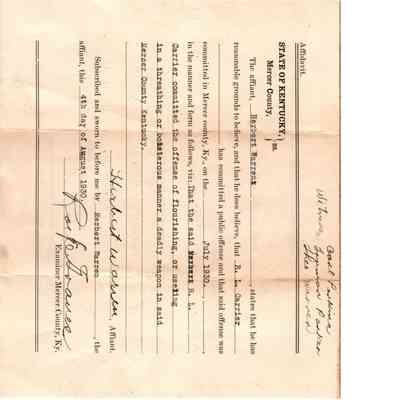 Affidavit.
STATE OF KENTUCKY,
Mercer County, } ss.
The affiant, Herbert Warren , states that he has
reasonable grounds to believe, and that he does believe, that R. L. Carrier
has committed a public offense and that said offense was
committed in Mercer county, Ky., on the July 1930.
in the manner and form as follows, viz: That the said R. L.
Carrier committed the offense of flourishing, or useing
in a threathing or boisterous manner a deadly weapon in said
Mercer County Kentucky.
Herbert Warren, Affiant.
Subscribed and sworn to before me by Herbert Warren , the
affiant, this 4th day of August 1930.
Examiner Mercer County, Ky.
Witness